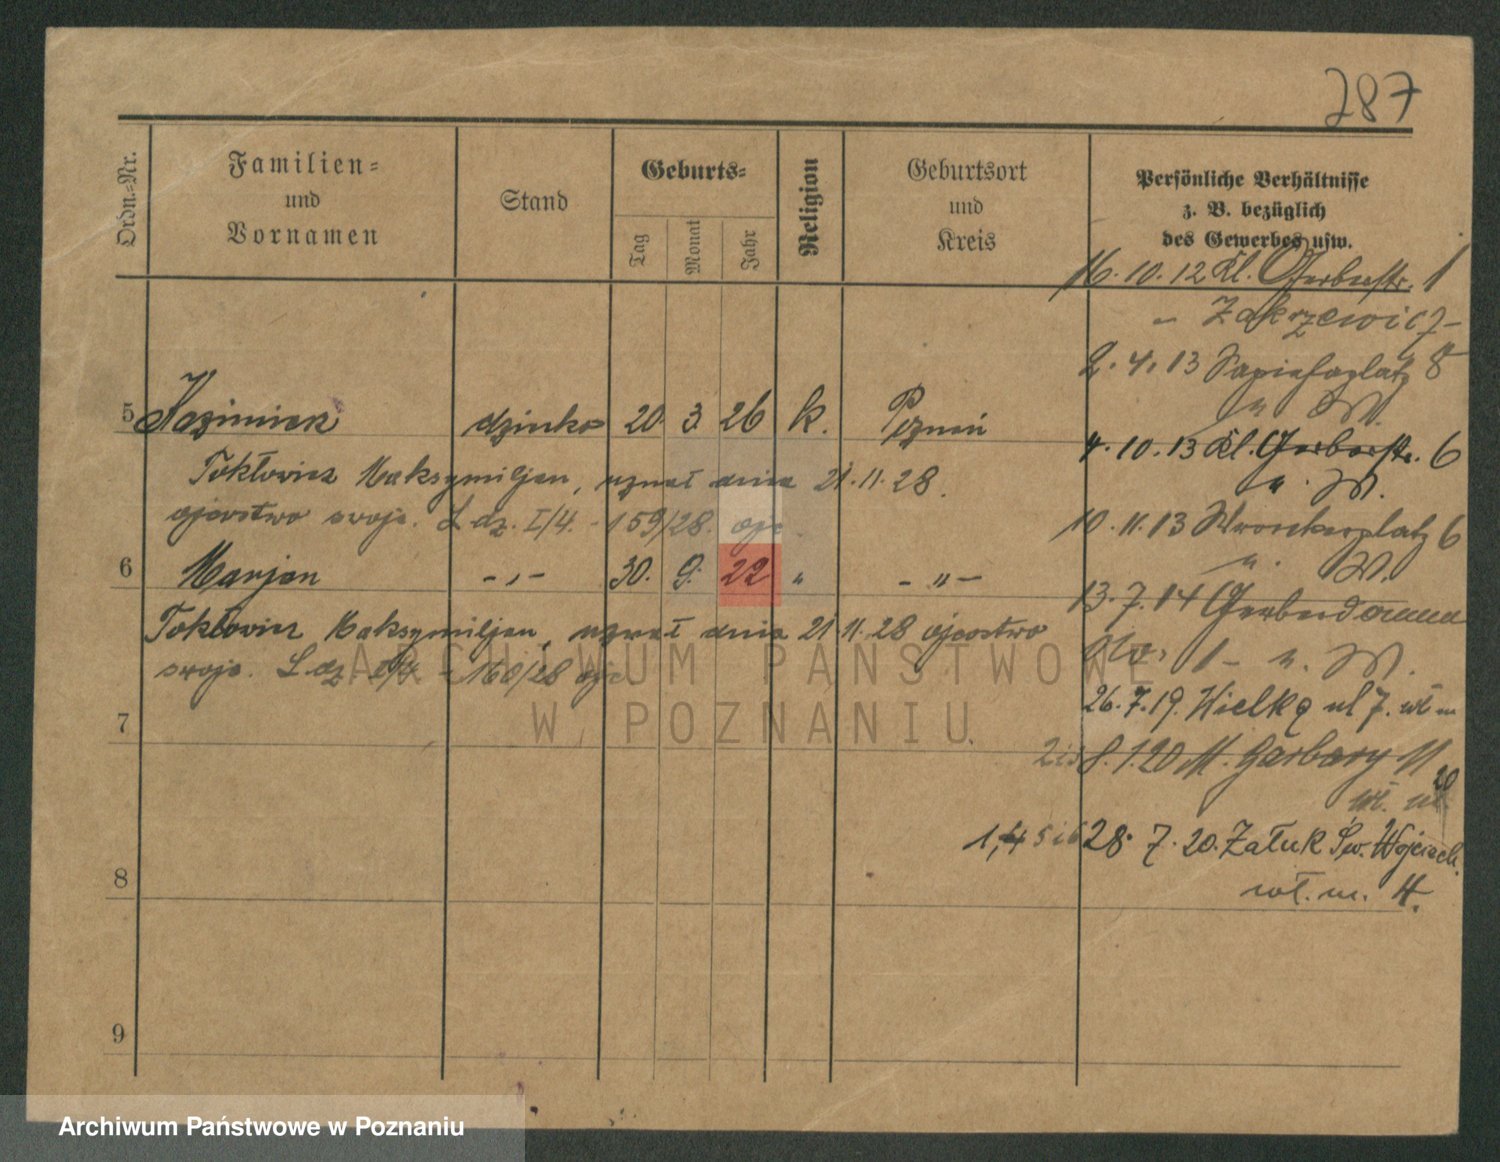 287
Ordn.-Nr.
Familien-
und
Vornamen
Stand
Geburts-
Tag
Monat
Jahr
Religion
Geburtsort
und
Kreis
Persönliche Verhältnisse
z. B. bezüglich
des Gewerbes usw.
16. 10. 12 Kl. Gerberstr. 1
" Zakrzewicz
2. 4. 13 Sapiehaplatz 8
5 Kazimierz dziecko 20. 3. 26 k. Poznań
4. 10. 13 Kl. Gerberstr. 6
Tokłowicz Maksymiljan, uznał dnia 21.11.28.
ojcostwo swoje. L. dz. I/4. - 159/28.
10. 11. 13 Wronkerplatz 6
6 Marjan - " - 30. 9. 22 " - " -
13. 7. 14 Gerberdamm
Tokłowicz Maksymiljan, uznał dnia 21 11. 28 ojcostwo
swoje. L. dz. I/4 - 160/28
26. 7. 19. Wielka ul 7.
7
8. 1. 20 M. Garbary 11
28. 7. 20. Zaułek Św. Wojciech.
8
wł. m. 4.
9
ARCHIWUM PAŃSTWOWE
W POZNANIU
Archiwum Państwowe w Poznaniu